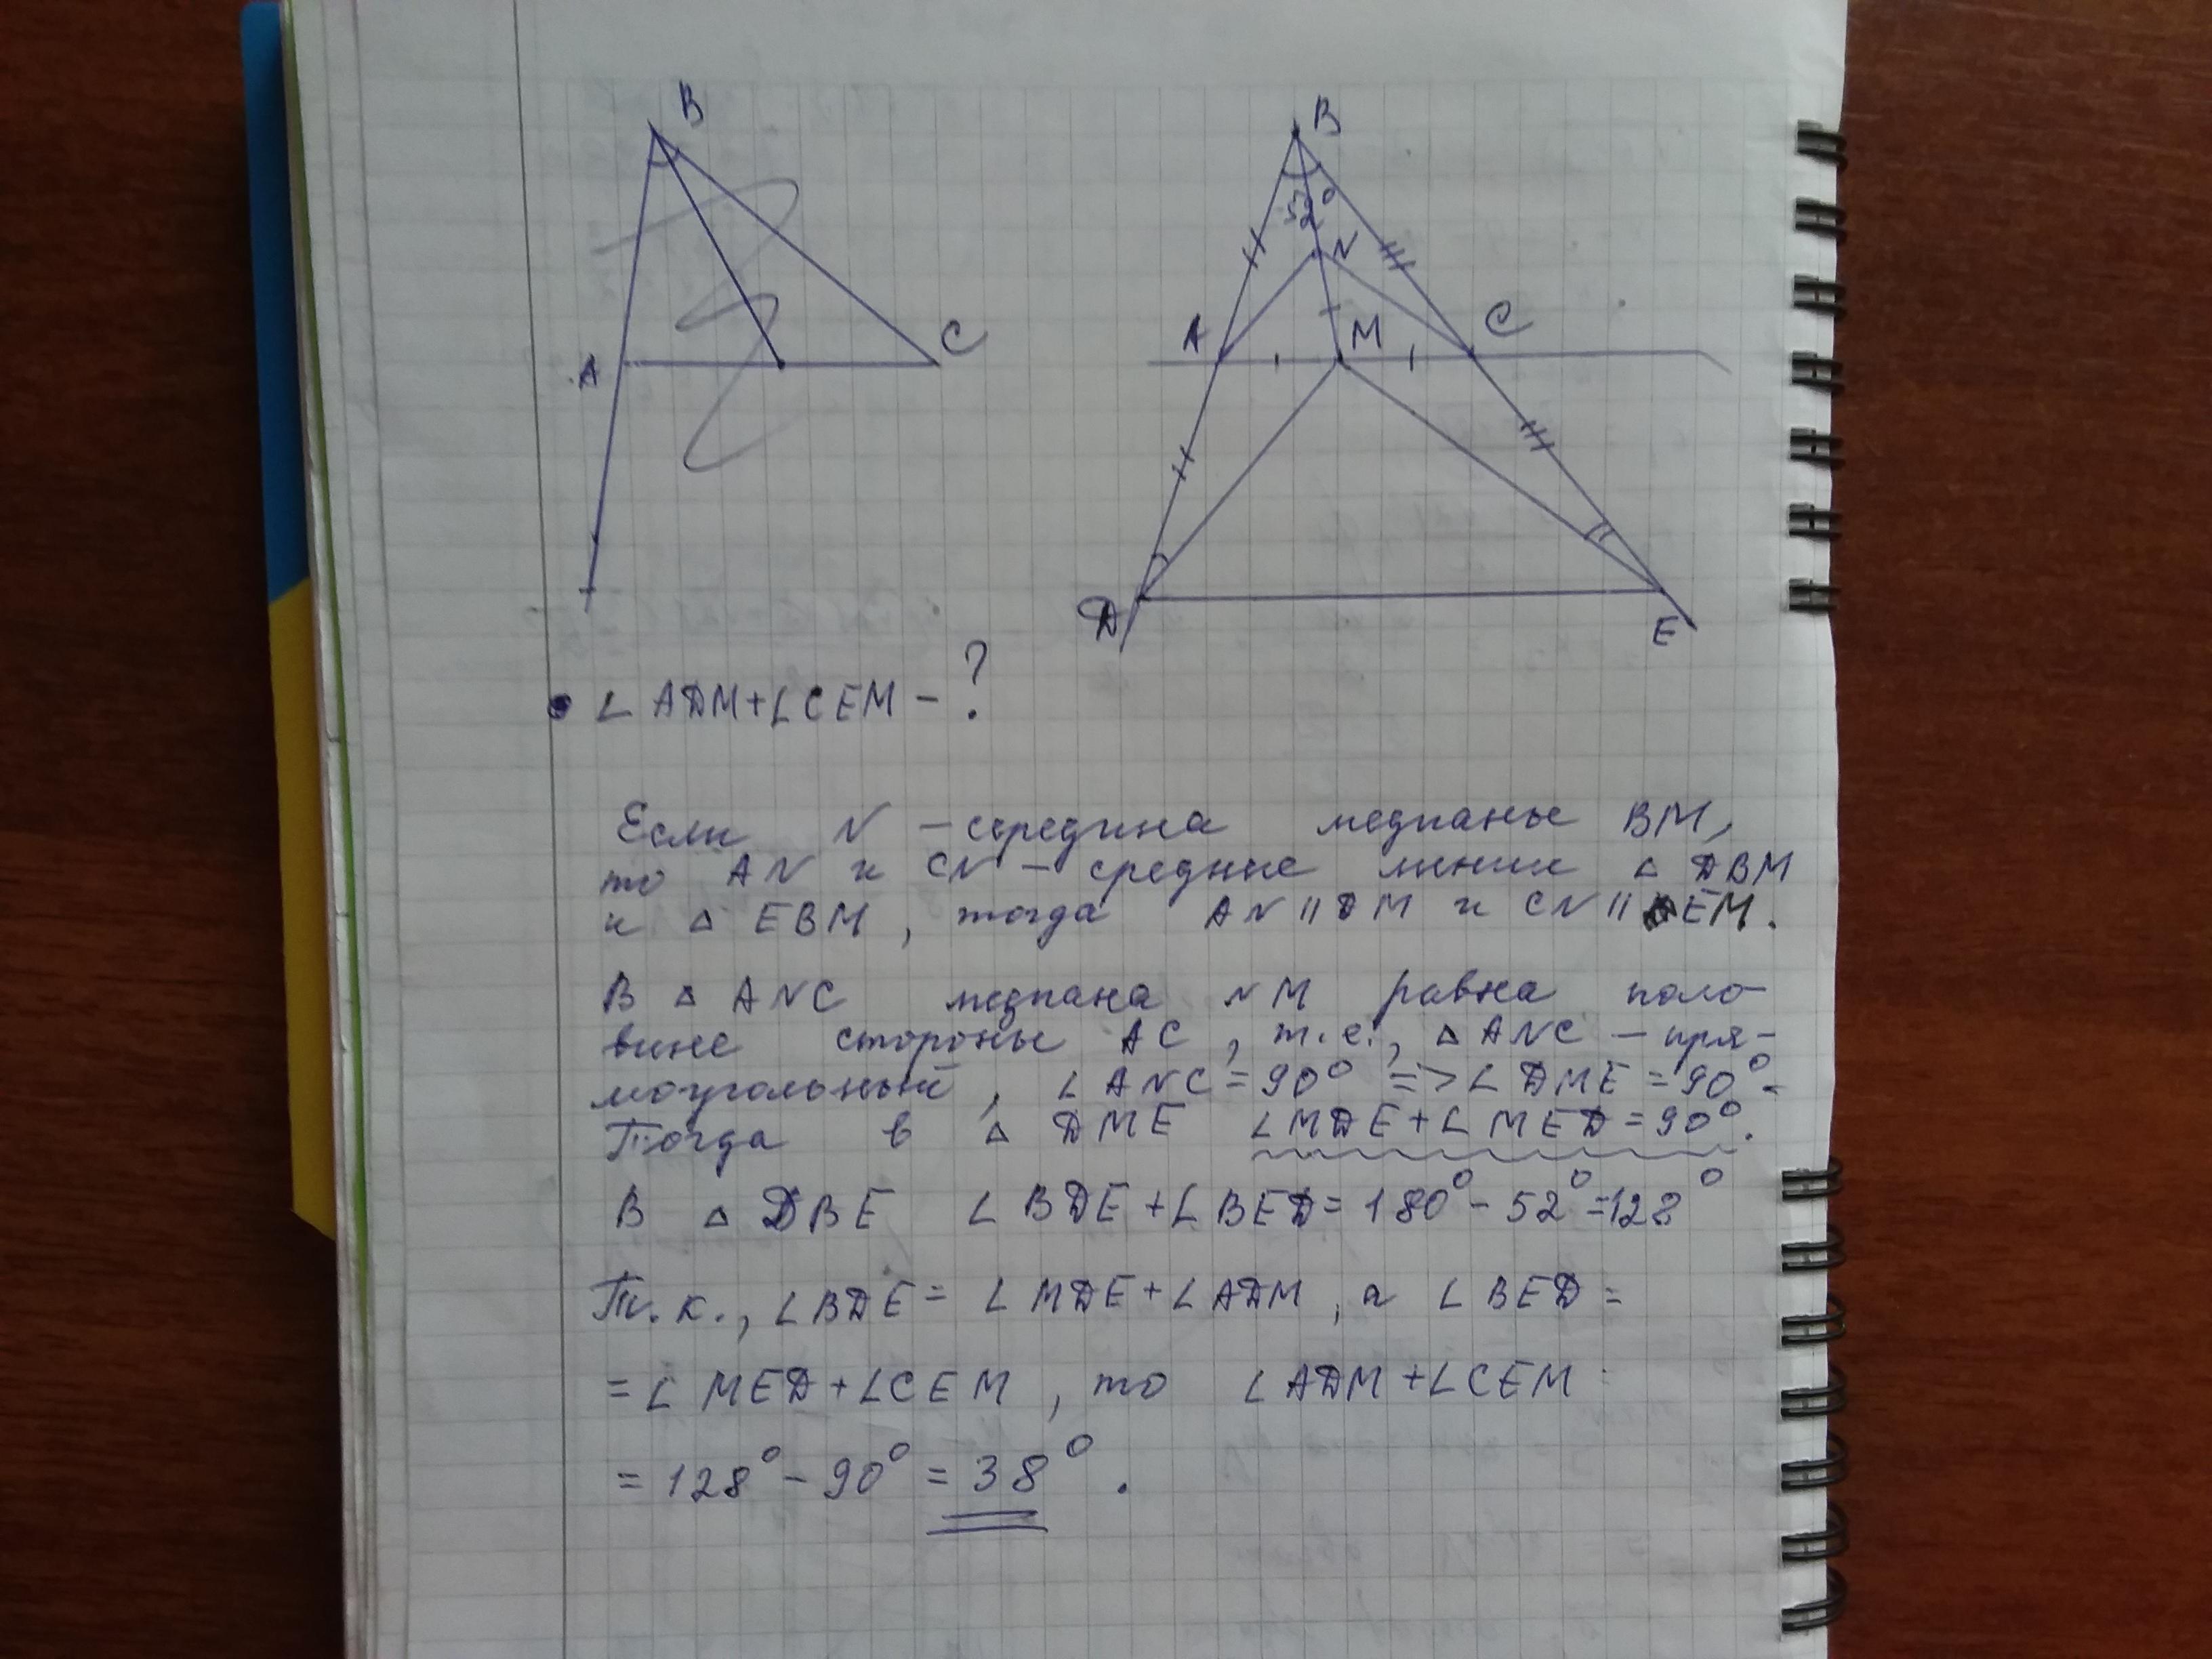 B
A
C
B
52°
N
A
M
C
D
E
∠ ADM + ∠ CEM - ?
Если N - середина медианы BM,
то AN и CN - средние линии △ DBM
и △ EBM, тогда AN || DM и CN || EM.
В △ ANC медиана NM равна поло-
вине стороны AC, т.е., △ ANC - пря-
моугольный, ∠ ANC = 90° => ∠ DME = 90°.
Тогда в △ DME ∠ MDE + ∠ MED = 90°.
В △ DBE ∠ BDE + ∠ BED = 180° - 52° = 128°
Т.к., ∠ BDE = ∠ MDE + ∠ ADM, а ∠ BED =
= ∠ MED + ∠ CEM, то ∠ ADM + ∠ CEM
= 128° - 90° = 38°.